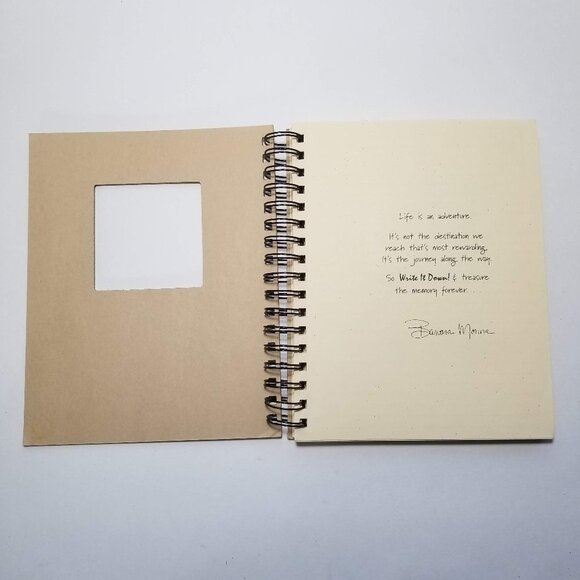 Life is an adventure.
It's not the destination we
reach that's most rewarding,
It's the journey along the way.
So Write It Down! & treasure
the memory forever...